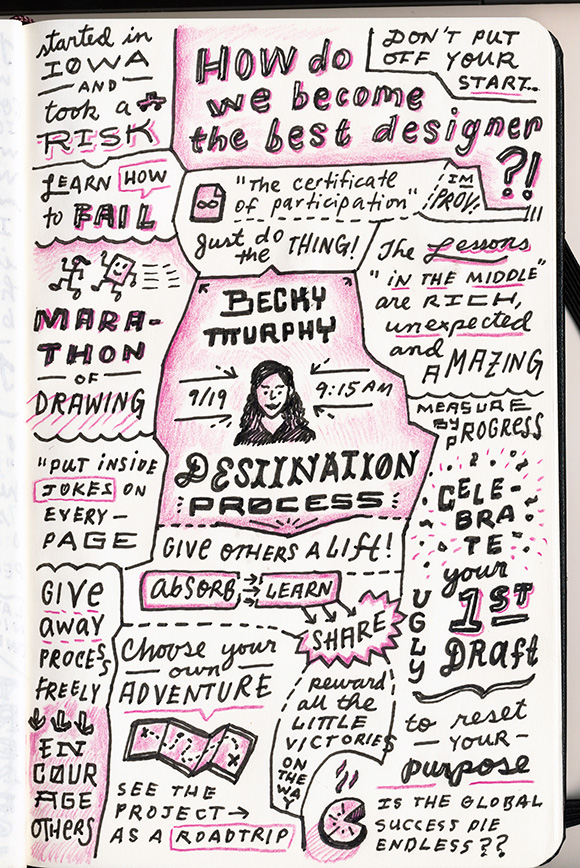 started in
IOWA
AND
took a
RISK
HOW do
we become
the best designer
?!
DON'T PUT
OFF YOUR
START...
LEARN HOW
to FAIL
"The certificate
of participation"
IM
PROV!
just do
the THING!
The Lessons
"IN THE MIDDLE"
are RICH,
unexpected
and
AMAZING
MARA-
THON
OF
DRAWING
BECKY
MURPHY
9/19
9:15 AM
DESTINATION
PROCESS
MEASURE
BY PROGRESS
"PUT INSIDE
JOKES ON
EVERY-
PAGE
CELE-
BRA
TE
your
1ST
UGLY
DRAft
GIVE OTHERS A LIFT!
AbSORB
LEARN
SHARE
GIVE
away
PROCESS
FREELY
EN
COUR
AGE
OTHERS
Choose your
own
ADVENTURE
SEE THE
PROJECT →
AS A ROADTRIP
reward
all the
LITTLE
VICTORIES
ON
THE
WAY
to reset
- YOUR -
purpose
IS THE GLOBAL
SUCCESS PIE
ENDLESS??